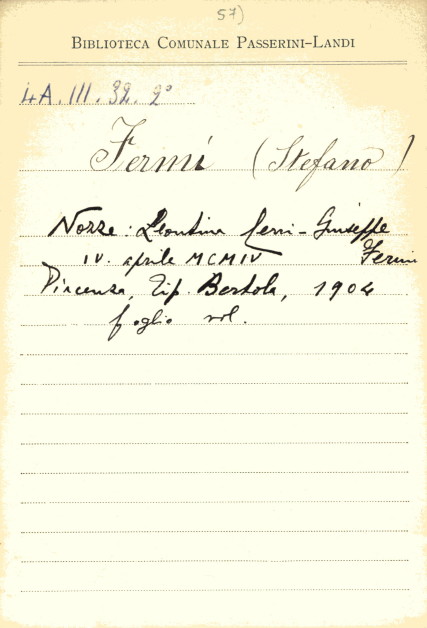 57)
BIBLIOTECA COMUNALE PASSERINI-LANDI
4A.III.32.2°
Fermi (Stefano)
Nozze: Leontina - Giuseppe
IV. aprile MCMIV Fermi
Piacenza, Tip. Bertola, 1904
foglio vol.